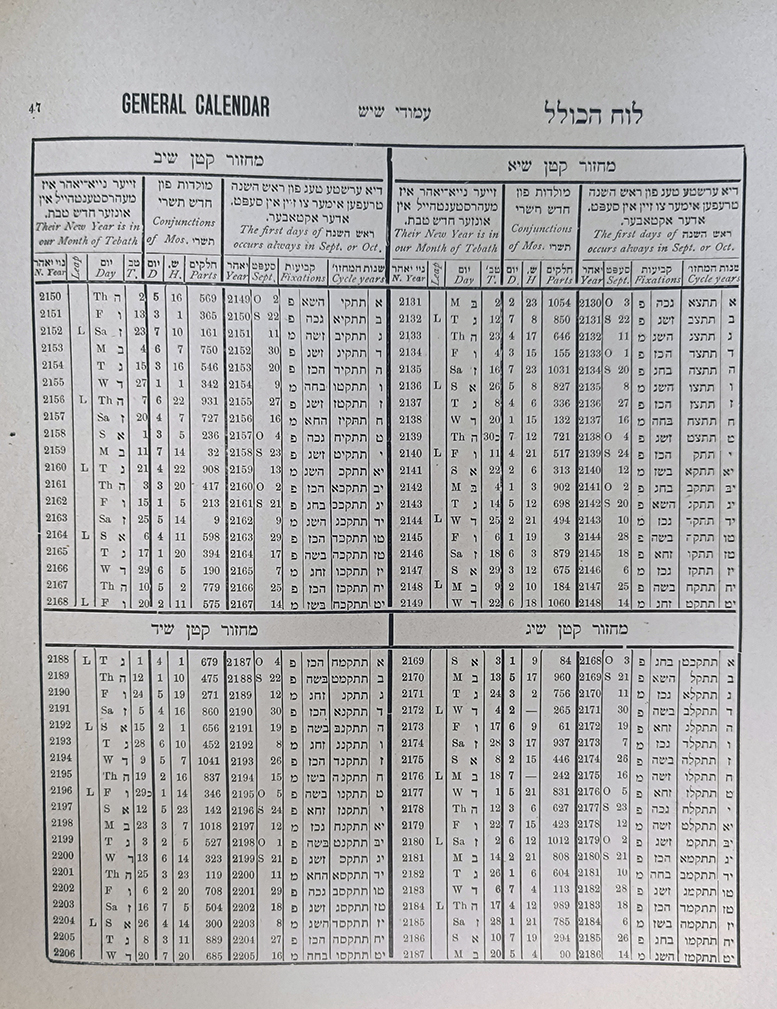 47 GENERAL CALENDAR עמודי שיש לוח הכולל
מחזור קטן שיא
דיא ערשטע טעג פון ראש השנה
טרעפען אימער צו זיין אין סעפט.
אדער אקטאבער.
The first days of ראש השנה
occurs always in Sept. or Oct.
מולדות פון
חדש תשרי
Conjunctions
of Mos. תשרי
זייער נייא־יאהר איז
מעהרסטענטהייל אין
אונזער חדש טבת.
Their New Year is in
our Month of Tebath
נויי יאהר Leap יום טב' יום ש. חלקים יאהר סעפט קביעות שנות המחזו'
N. Year Day T. D. H. Parts Year Sept. Fixations Cycle years
2131 M ב 2 2 23 1054 2130 O 3 פ נכה תתצא א
2132 L T ג 12 7 8 850 2131 S 22 פ זשג תתצב ב
2133 Th ה 23 4 17 646 2132 11 מ השג תתצג ג
2134 F ו 4 3 15 155 2133 O 1 פ הכז תתצד ד
2135 Sa ז 16 7 23 1031 2134 S 20 פ בחג תתצה ה
2136 L S א 26 5 8 827 2135 8 מ השג תתצו ו
2137 T ג 8 4 6 336 2136 27 פ הכז תתצז ז
2138 W ד 20 1 15 132 2137 16 מ בחה תתצח ח
2139 Th ה 30 7 12 721 2138 O 4 פ זשג תתצט ט
2140 L F ו 11 4 21 517 2139 S 24 פ הכז תתק י
2141 S א 22 2 6 313 2140 12 מ בשז תתקא יא
2142 M ב 4 1 3 902 2141 O 2 פ בחג תתקב יב
2143 T ג 14 5 12 698 2142 S 20 פ השא תתקג יג
2144 L W ד 25 2 21 494 2143 10 מ נכז תתקד יד
2145 F ו 6 1 19 3 2144 28 פ בשה תתקה טו
2146 Sa ז 18 6 3 879 2145 18 פ זחא תתקו טז
2147 S א 29 3 12 675 2146 6 מ נכז תתקז יז
2148 L M ב 9 2 10 184 2147 25 פ בשה תתקח יח
2149 W ד 22 6 18 1060 2148 14 מ זחג תתקט יט
מחזור קטן שיב
דיא ערשטע טעג פון ראש השנה
טרעפען אימער צו זיין אין סעפט.
אדער אקטאבער.
The first days of ראש השנה
occurs always in Sept. or Oct.
מולדות פון
חדש תשרי
Conjunctions
of Mos. תשרי
זייער נייא־יאהר איז
מעהרסטענטהייל אין
אונזער חדש טבת.
Their New Year is in
our Month of Tebath
נויי יאהר Leap יום טב יום ש. חלקים יאהר סעפט קביעות שנות המחזו'
N. Year Day T. D H. Parts Year Sept. Fixations Cycle years
2150 Th ה 2 5 16 569 2149 O 2 פ השא תתקי א
2151 F ו 13 3 1 365 2150 S 22 פ נכה תתקיא ב
2152 L Sa ז 23 7 10 161 2151 11 מ זשה תתקיב ג
2153 M ב 4 6 7 750 2152 30 פ זשג תתקיג ד
2154 T ג 15 3 16 546 2153 20 פ הכז תתקיד ה
2155 W ד 27 1 1 342 2154 9 מ בחה תתקטו ו
2156 L Th ה 7 6 22 931 2155 27 פ זשג תתקטז ז
2157 Sa ז 20 4 7 727 2156 16 מ החא תתקיז ח
2158 S א 1 3 5 236 2157 O 4 פ נכה תתקיח ט
2159 M ב 11 7 14 32 2158 S 23 פ זשג תתקיט י
2160 L T ג 21 4 22 908 2159 13 מ השג תתקכ יא
2161 Th ה 3 3 20 417 2160 O 2 פ הכז תתקכא יב
2162 F ו 15 1 5 213 2161 S 21 פ בחג תתקכב יג
2163 Sa ז 25 5 14 9 2162 9 מ השג תתקכג יד
2164 L S א 6 4 11 598 2163 29 פ הכז תתקכד טו
2165 T ג 17 1 20 394 2164 17 פ בשה תתקכה טז
2166 W ד 29 6 5 190 2165 7 מ זחג תתקכו יז
2167 Th ה 10 5 2 779 2166 25 פ הכז תתקכז יח
2168 L F ו 20 2 11 575 2167 14 מ בשז תתקכח יט
מחזור קטן שיג
2169 S א 3 1 9 84 2168 O 3 פ בחג תתקכט א
2170 M ב 13 5 17 960 2169 S 21 פ השא תתקל ב
2171 T ג 24 3 2 756 2170 11 מ נכז תתקלא ג
2172 L W ד 4 2 — 265 2171 30 פ בשה תתקלב ד
2173 F ו 17 6 9 61 2172 19 פ זחא תתקלג ה
2174 Sa ז 28 3 17 937 2173 7 מ נכז תתקלד ו
2175 S א 8 2 15 446 2174 26 פ בשה תתקלה ז
2176 L M ב 18 7 — 242 2175 16 מ זשה תתקלו ח
2177 W ד 1 5 21 831 2176 O 5 פ זחא תתקלז ט
2178 Th ה 12 3 6 627 2177 S 23 פ נכה תתקלח י
2179 F ו 22 7 15 423 2178 12 מ זשה תתקלט יא
2180 L Sa ז 2 6 12 1012 2179 O 2 פ זשג תתקמ יב
2181 M ב 14 2 21 808 2180 S 21 פ הכז תתקמא יג
2182 T ג 26 1 6 604 2181 10 מ בחה תתקמב יד
2183 W ד 6 7 4 113 2182 28 פ זשג תתקמג טו
2184 L Th ה 17 4 12 989 2183 18 פ הכז תתקמד טז
2185 Sa ז 28 1 21 785 2184 6 מ בשז תתקמה יז
2186 S א 10 7 19 294 2185 26 פ בחג תתקמו יח
2187 M ב 20 5 4 90 2186 14 מ השג תתקמז יט
מחזור קטן שיד
2188 L T ג 1 4 1 679 2187 O 4 פ הכז תתקמח א
2189 Th ה 12 1 10 475 2188 S 22 פ בשה תתקמט ב
2190 F ו 24 5 19 271 2189 12 מ זחג תתקנ ג
2191 Sa ז 5 4 16 860 2190 30 פ הכז תתקנא ד
2192 L S א 15 2 1 656 2191 19 פ בשה תתקנב ה
2193 T ג 28 6 10 452 2192 8 מ זחג תתקנג ו
2194 W ד 9 5 7 1041 2193 26 פ הכז תתקנד ז
2195 Th ה 19 2 16 837 2194 15 מ בשז תתקנה ח
2196 L F ו 29 1 14 346 2195 O 5 פ בשה תתקנו ט
2197 S א 12 5 23 142 2196 S 24 פ זחא תתקנז י
2198 M ב 23 3 7 1018 2197 12 מ נכז תתקנח יא
2199 T ג 3 2 5 527 2198 O 1 פ בשה תתקנט יב
2200 W ד 13 6 14 323 2199 S 21 פ זשג תתקס יג
2201 Th ה 25 3 23 119 2200 11 מ החא תתקסא יד
2202 F ו 6 2 20 708 2201 29 פ נכה תתקסב טו
2203 Sa ז 16 7 5 504 2202 18 פ זשג תתקסג טז
2204 L S א 26 4 14 300 2203 8 מ השג תתקסד יז
2205 T ג 8 3 11 889 2204 27 פ הכז תתקסה יח
2206 W ד 20 7 20 685 2205 16 מ בחה תתקסו יט